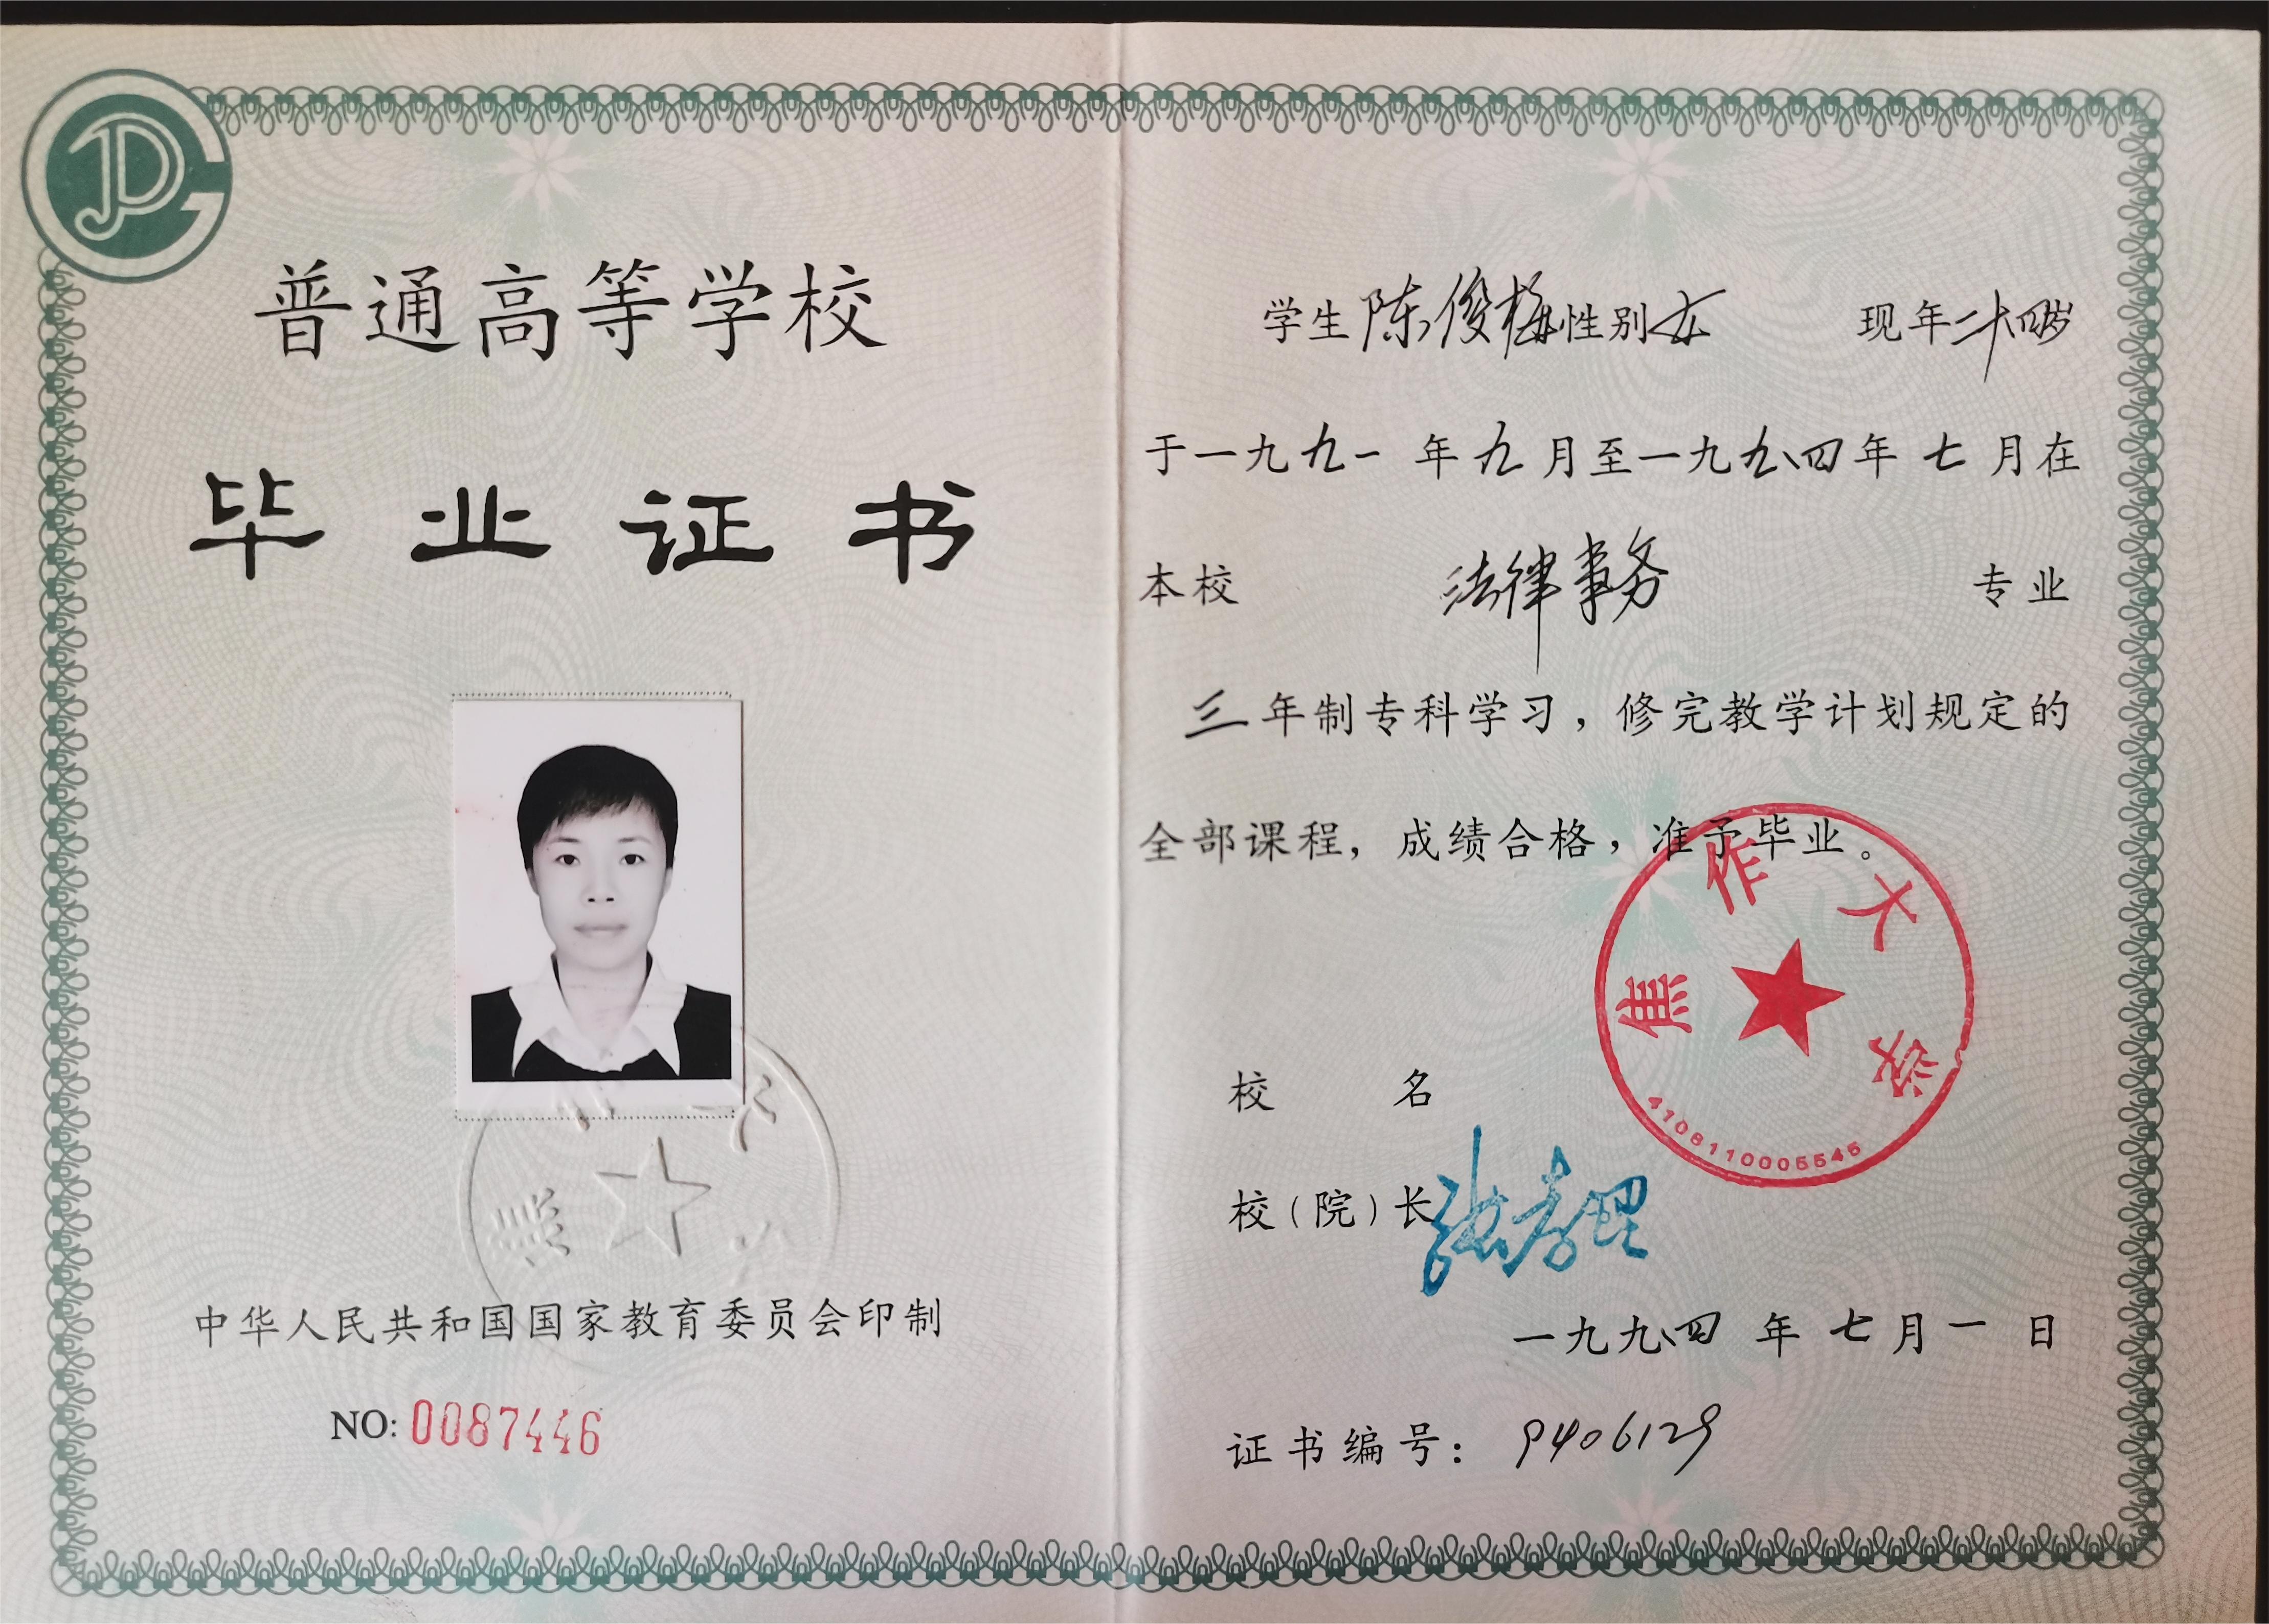 普通高等学校
毕业证书
中华人民共和国国家教育委员会印制
NO: 0087446
学生陈俊梅性别女 现年二十四岁
于一九九一年九月至一九九四年七月在
本校 法律事务 专业
三年制专科学习，修完教学计划规定的
全部课程，成绩合格，准予毕业。
焦作大学
4108110005545
校 名
校（院）长 张孝理
一九九四年七月一日
证书编号：9406129